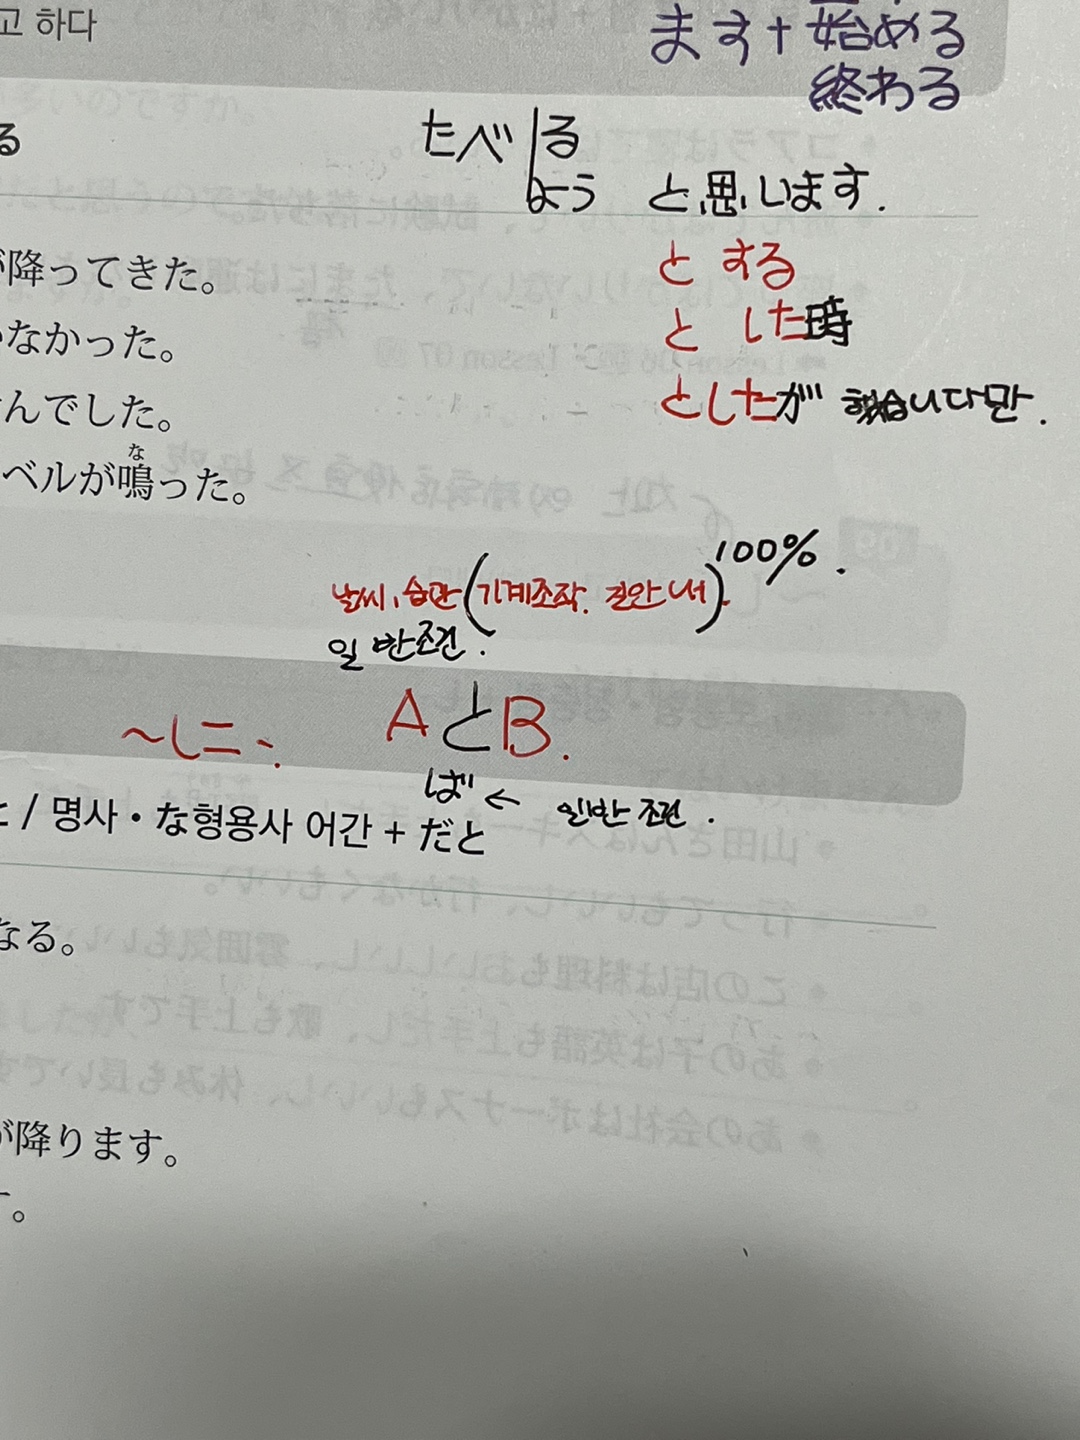 고 하다
ます+始める
終わる
たべ る
よう と思います.
る
とする
が降ってきた。
と した時
なかった。
としたが 했습니다만.
んでした。
な
ベルが鳴った。
100%.
날씨, 습관(기계조작. 길안내서).
일반조건.
AとB.
~し
ば ← 일반 조건.
と / 명사・な형용사 어간 + だと
なる。
が降ります。
す。